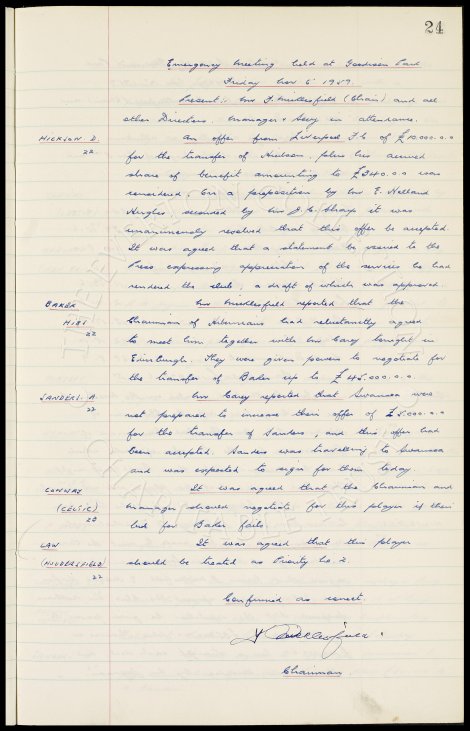 24
Emergency Meeting held at Goodison Park
Friday Nov 6 1959.
Present:- Mr F. Micklesfield (Chair) and all
other Directors. Manager & Secy in attendance.
HICKSON. D.
22
An offer from Liverpool F.C. of £10.000.0.0
for the transfer of Hickson, plus his accrued
share of benefit amounting to £340.0.0 was
considered. On a proposition by Mr E. Holland
Hughes seconded by Mr J.C. Sharp it was
unanimously resolved that this offer be accepted.
It was agreed that a statement be issued to the
Press expressing appreciation of the services he had
rendered the club, a draft of which was approved.
BAKER
HIBS
22
Mr Micklesfield reported that the
Chairman of Hibernians had reluctantly agreed
to meet him together with Mr Carey tonight in
Edinburgh. They were given powers to negotiate for
the transfer of Baker up to £45.000.0.0
SANDERS. A.
22
Mr Carey reported that Swansea were
not prepared to increase their offer of £5.000.0.0
for the transfer of Sanders, and this offer had
been accepted. Sanders was travelling to Swansea
and was expected to sign for them today.
CONWAY
(CELTIC)
20
It was agreed that the Chairman and
Manager should negotiate for this player if their
bid for Baker fails.
LAW
(HUDDERSFIELD)
22
It was agreed that this player
should be treated as Priority No. 2.
Confirmed as correct.
Chairman.